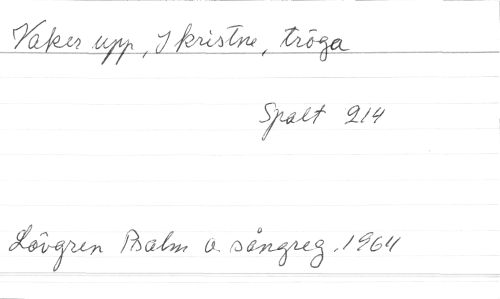 Vaker upp, I kristne, tröga
Spalt 214
Lövgren Psalm o. sångreg. 1964